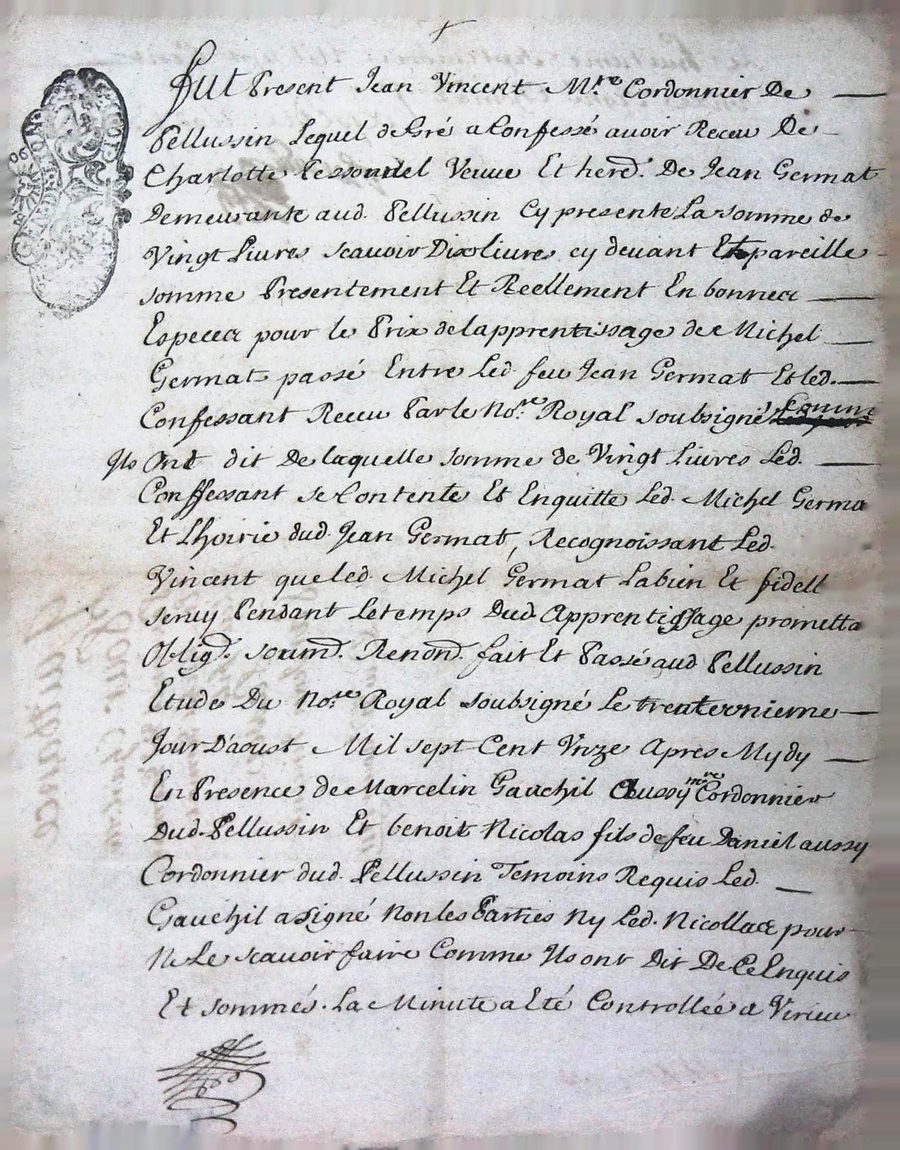 Fut Present Jean Vincent M.tre Cordonnier De
Pellussin Lequel de Gré a Confessé avoir Receu De
Charlotte Veuve Et hered. De Jean Germat
Demeurante aud. Pellussin Cy presente La somme de
Vingt Livres scavoir Dix livres cy devant Et pareille
somme Presentement Et Reellement En bonnes
Especes pour le Prix de lapprentissage de Michel
Germat passé Entre Led. feu Jean Germat Et led.
Confessant Receu Par le No.re Royal soubsigné Comme
Ils Ont dit De laquelle somme de Vingt Livres Led.
Conffessant se Contente Et Enquitte Led. Michel Germa
Et Lhoirie dud. Jean Germat, Recognoissant Led.
Vincent que led. Michel Germat La bien Et fidell
servy Pendant Le temps Dud. Apprentissage prometta
Oblig.d soumd. Renond. fait Et Passé aud. Pellussin
Etude Du No.re Royal soubsigné Le trente
Jour D'aoust Mil sept Cent Unze Apres Mydy
En Presence de Marcelin Gauchil Aussy m.re Cordonnier
Dud. Pellussin Et benoit Nicolas fils de feu Daniel aussy
Cordonnier dud. Pellussin Temoins Requis Led.
Gauchil a signé Non les Parties Ny Led. Nicollas pour
Ne Le scavoir faire Comme Ils ont Dit De Ce Enquis
Et sommés. La Minute a Eté Controllée a Virieu